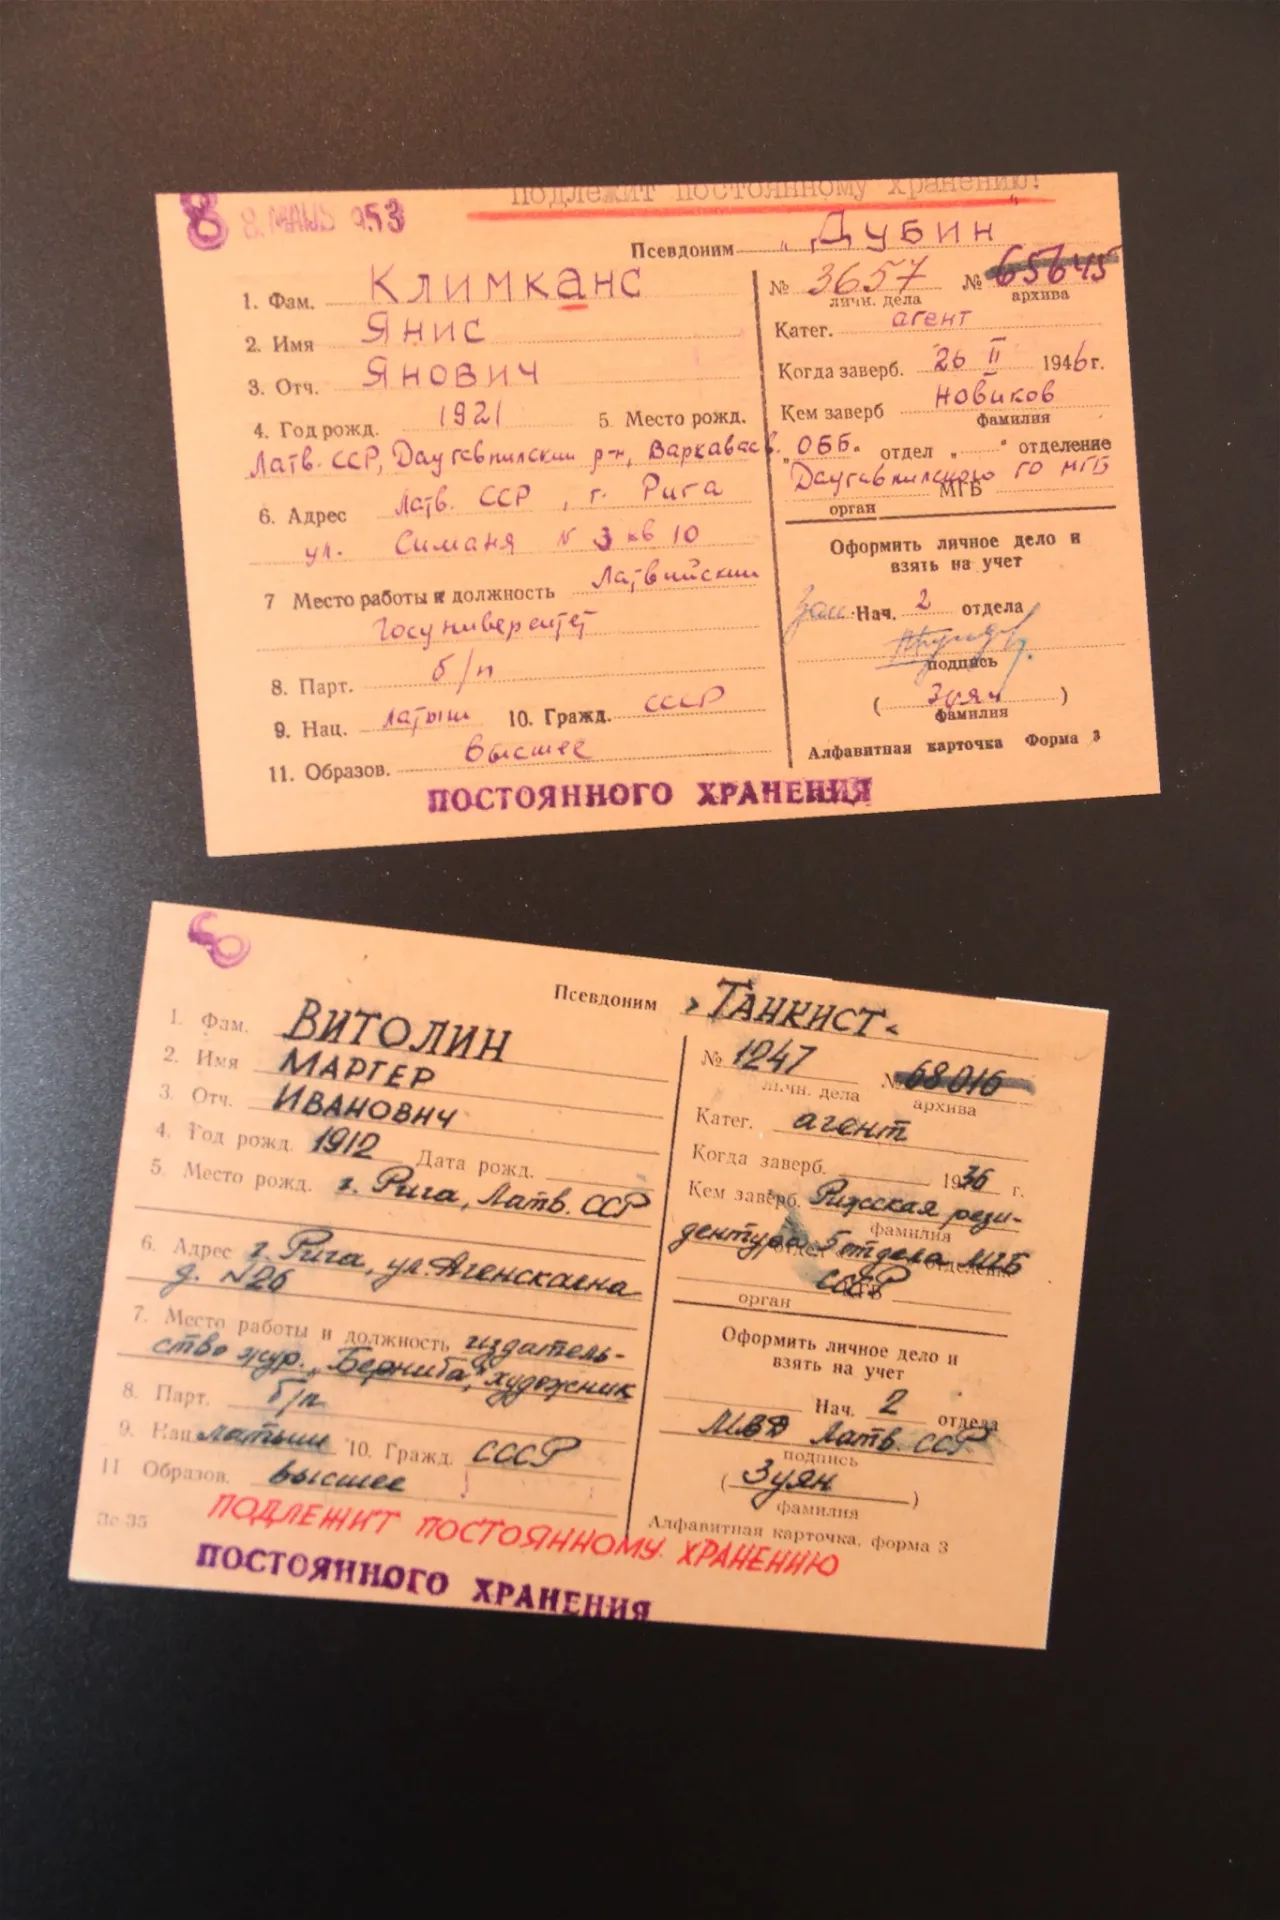 Подлежит постоянному хранению!
8 8. МАЙ 1953
Псевдоним „Дубин“
1. Фам. Климканс
2. Имя Янис
3. Отч. Янович
4. Год рожд. 1921 5. Место рожд.
Латв. ССР, Даугавпилский р-н, Варкавас в.
6. Адрес Латв. ССР, г. Рига
ул. Симаня № 3 кв 10
7 Место работы и должность Латвийский
Госуниверситет
8. Парт. б/п
9. Нац. латыш 10. Гражд. СССР
11. Образов. высшее
№ 3657 № 65645
личн. дела архива
Катег. агент
Когда заверб. 26 II 1946 г.
Кем заверб Новиков
фамилия
„ОББ“ отдел „ “ отделение
Даугавпилского ГО МГБ
МГБ
орган
Оформить личное дело и
взять на учет
Зам. Нач. 2 отдела
подпись
( Зуян )
фамилия
Алфавитная карточка Форма 3
ПОСТОЯННОГО ХРАНЕНИЯ
Псевдоним „Танкист“
1. Фам. Витолин
2. Имя Маргер
3. Отч. Иванович
4. Год рожд. 1912 Дата рожд.
5. Место рожд. г. Рига, Латв. ССР
6. Адрес г. Рига, ул. Агенскална
д. №26
7. Место работы и должность издатель-
ство жур. „Бернiба“, художник
8. Парт. б/п
9. Нац. латыш 10. Гражд. СССР
11 Образов. высшее
№ 1247 № 68016
личн. дела архива
Катег. агент
Когда заверб. 1936 г.
Кем заверб. Рижская рези-
фамилия
дентура 5 отдела МГБ
отдел отделение
СССР
МГБ
орган
Оформить личное дело и
взять на учет
Нач. 2 отдела
МВД Латв. ССР
подпись
( Зуян )
фамилия
Алфавитная карточка, форма 3
ПОДЛЕЖИТ ПОСТОЯННОМУ ХРАНЕНИЮ
Зс-35
ПОСТОЯННОГО ХРАНЕНИЯ